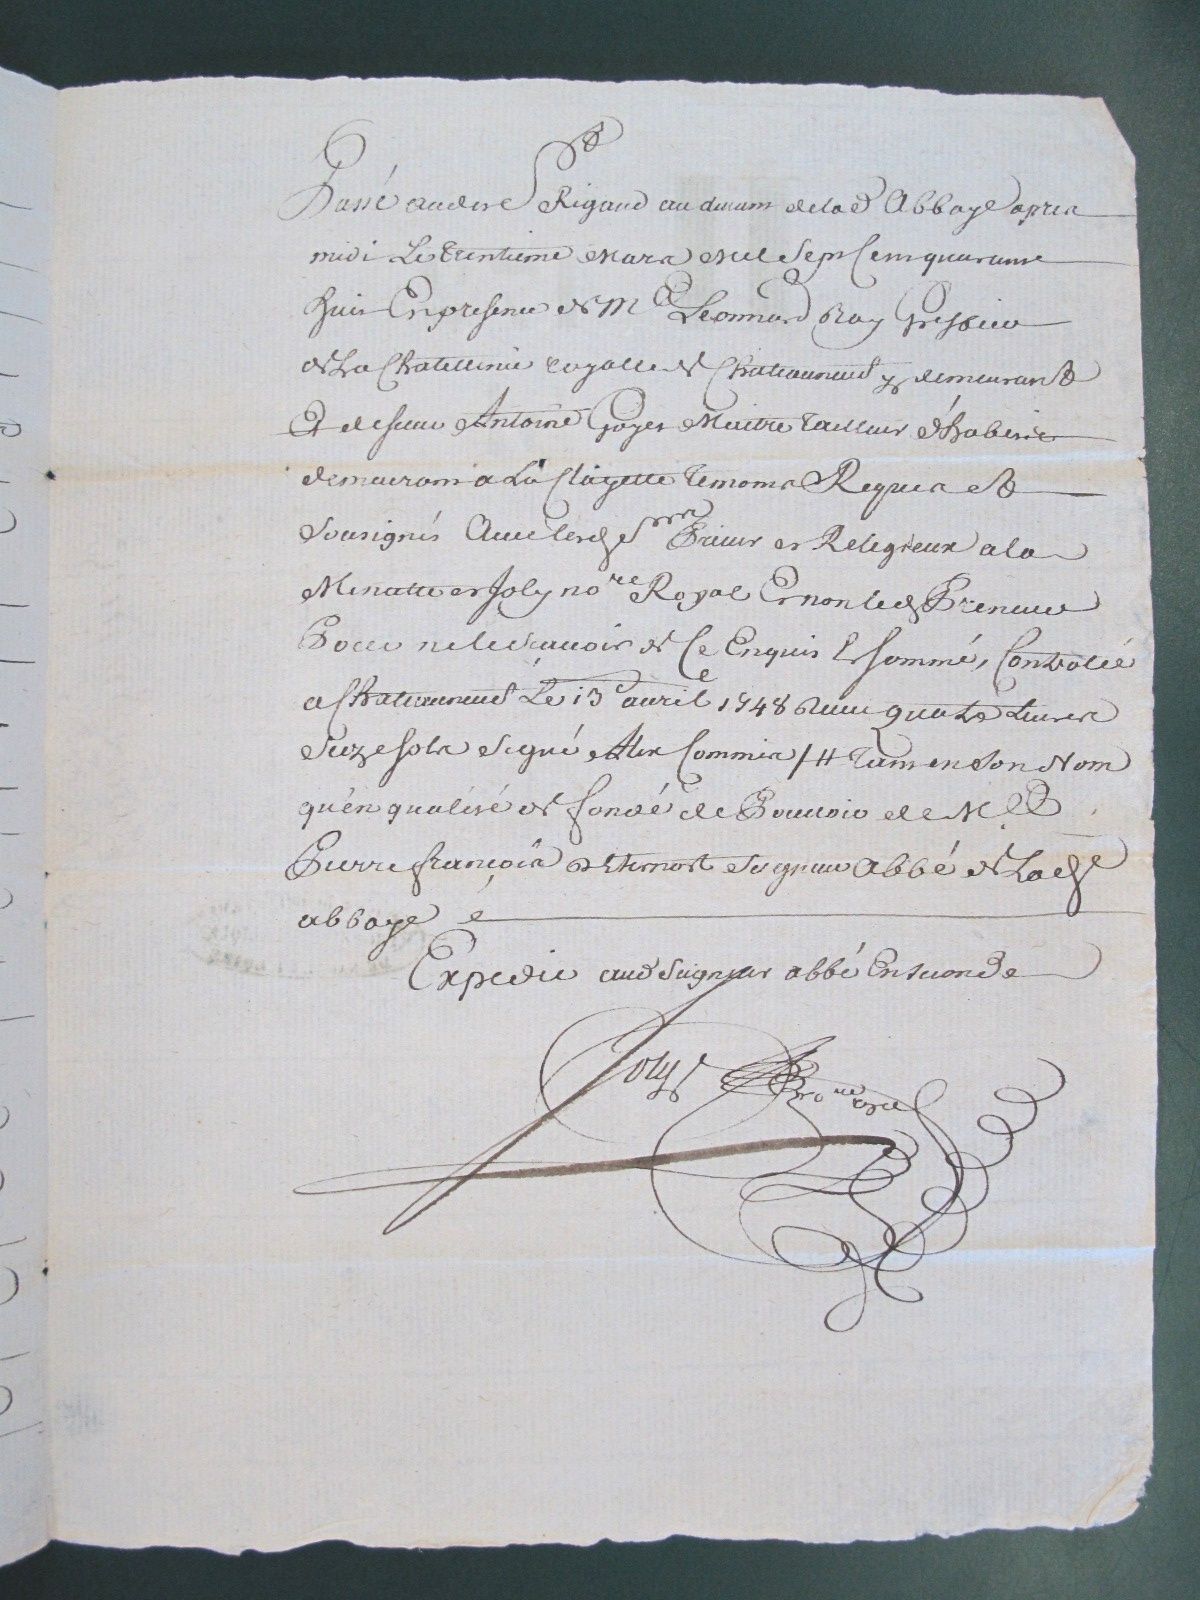 Passé audit St Rigaud au devant de lad Abbaye apres
midi Le trentieme Mars Mil Sept Cent quarante
huit En presence de Me Leonnard Ray Greffier
de La Chatellenie royalle de Chateauneuf y demeurant
Et de sieur Antoine Goyet Maitre tailleur d'habits
demeurant a La Clayette temoins Requis et
Sousignés Avec lesd Srs Prieur et Religieux a la
Minutte et Joly nore Royal Et non led Preneur
Pour ne le scavoir de Ce Enquis Et sommé, Controlée
a Chateauneuf Le 13e avril 1748 Receu quatre Livres
seize sols signé Alex Commis / # tant en son Nom
qu'en qualité de fondé de Pouvoir de Mre
Pierre françois seigneur abbé de Lade
abbaye
Expedié aud Seigneur abbé En seconde
Joly nore royal